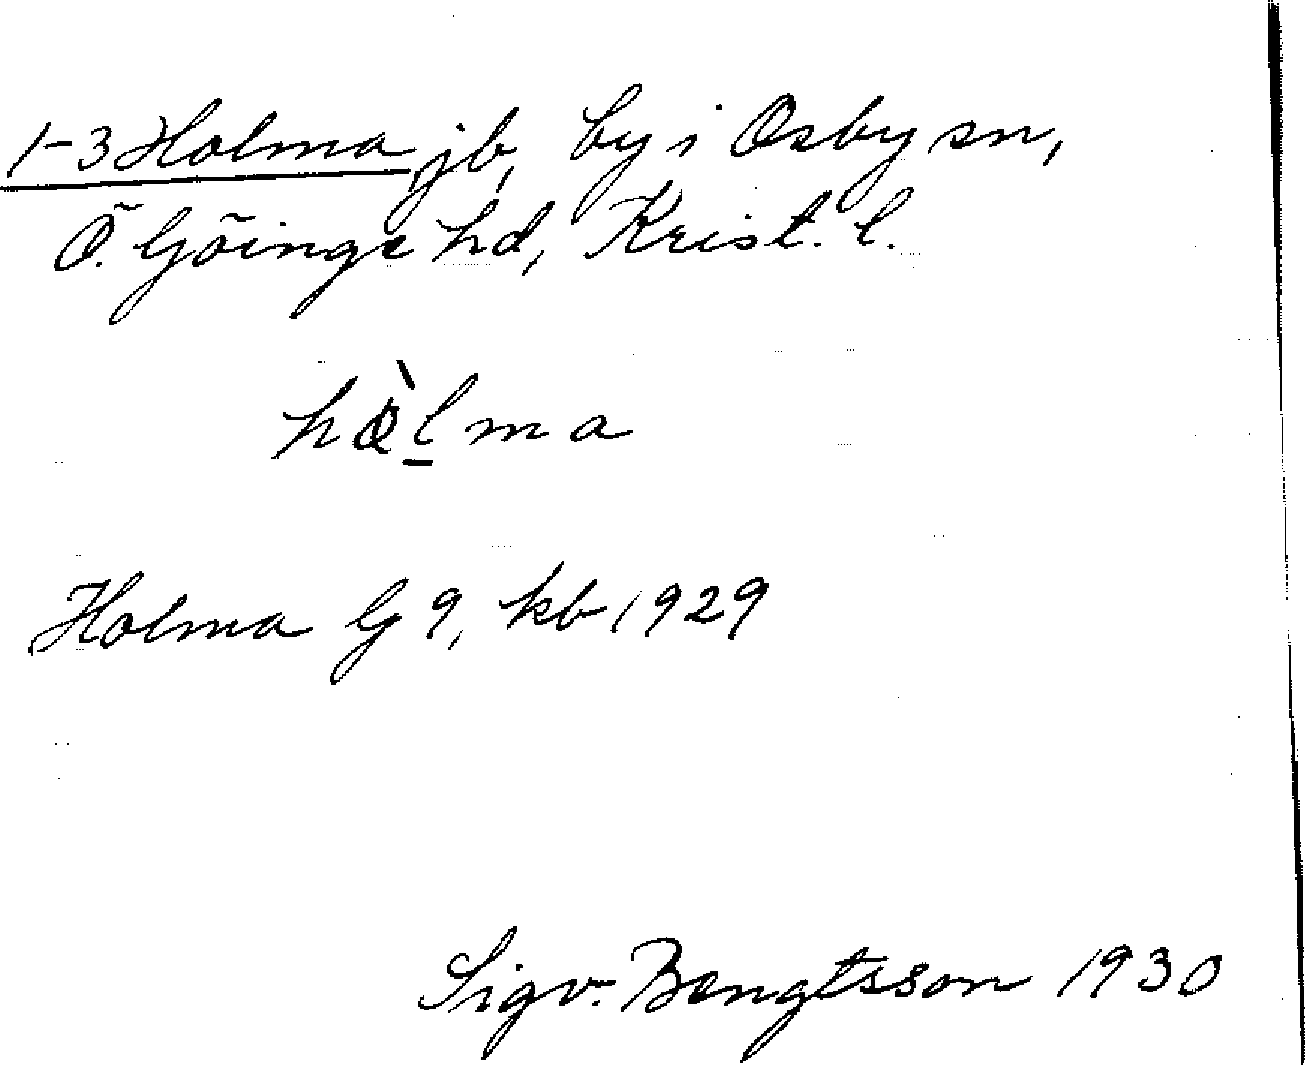 1-3 Holma jb, by i Osby sn,
Ö. Göinge hd, Krist. l.
hàlma
Holma G 9, kb 1929
Sigv. Bengtsson 1930